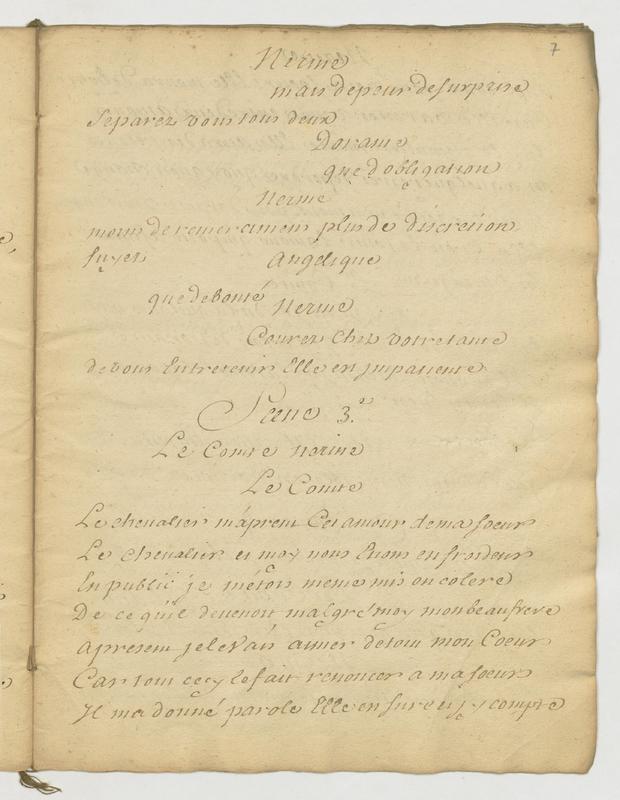 7
Nerine
mais de peur de surprise
Separez vous tous deux
Dorame
que d'obligation
Nerine
moins de remerciemens plus de discretion
fuyez
Angélique
que de bonté
Nerine
Courez chez votre tante
de vous Entretenir Elle en jmpatiente
Scene 3.e
Le Comte nerine
Le Comte
Le chevalier m'aprent Cet amour de ma soeur
Le chevalier et moy nous Etions en froideur
En public je m'étois meme mis en colere
De ce qu'il devenoit malgré moy mon beau frere
apresent je le vais aimer de tout mon Coeur
Car tout cecy le fait renoncer a ma soeur
Il m'a donné parole Elle en sure et j'y compte